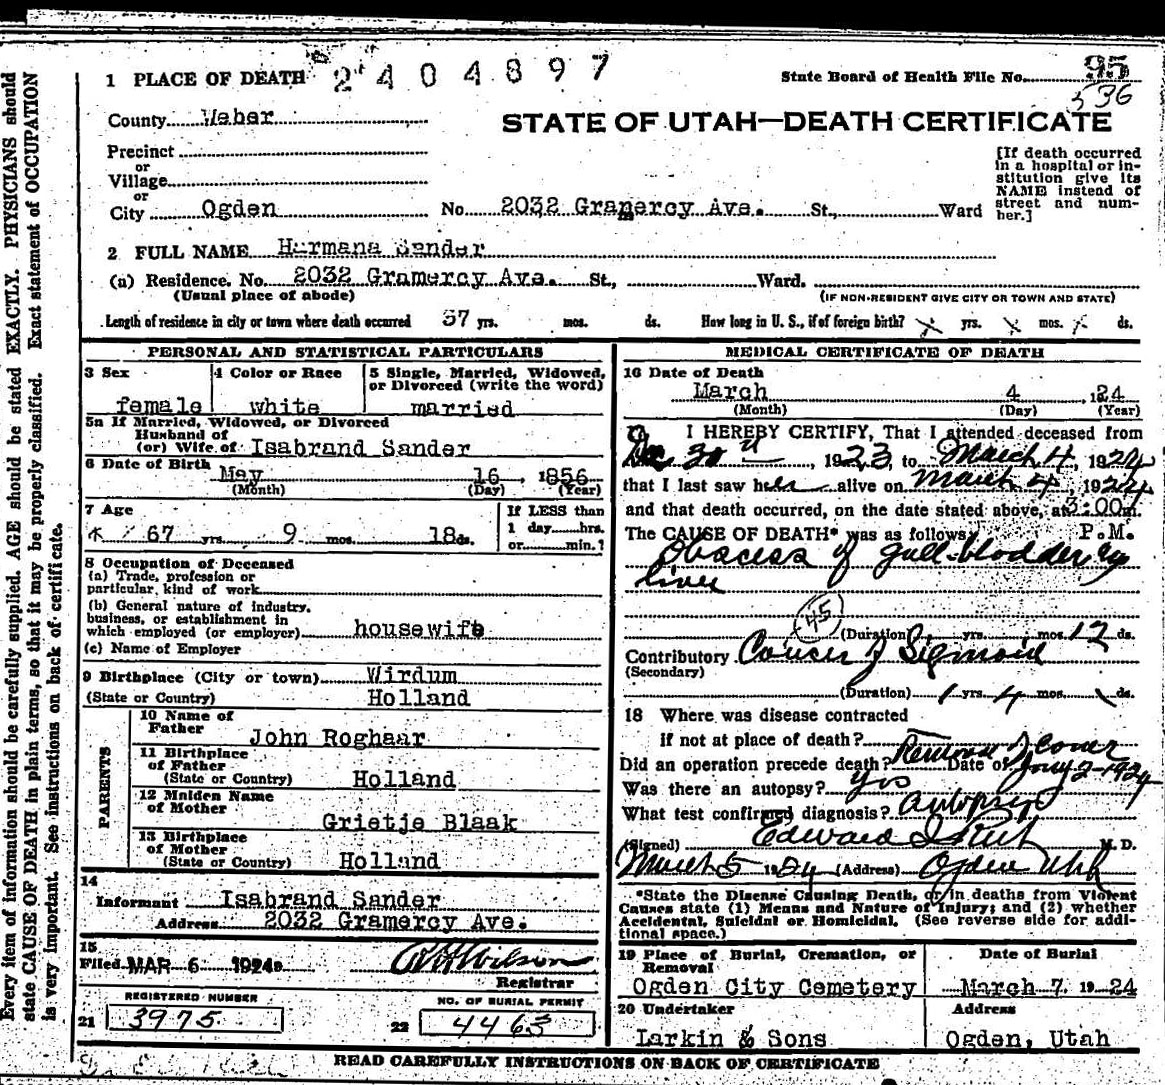 Every item of information should be carefully supplied. AGE should be stated EXACTLY. PHYSICIANS should
state CAUSE OF DEATH in plain terms, so that it may be properly classified. Exact statement of OCCUPATION
is very important. See instructions on back of certificate.
1 PLACE OF DEATH 2404897
State Board of Health File No. 95
336
County Weber
STATE OF UTAH—DEATH CERTIFICATE
Precinct
or
Village
or
City Ogden No. 2032 Gramercy Ave. St., Ward
[If death occurred
in a hospital or in-
stitution give its
NAME instead of
street and num-
ber.]
2 FULL NAME Hermana Sander
(a) Residence. No. 2032 Gramercy Ave. St., Ward.
(Usual place of abode)
(IF NON-RESIDENT GIVE CITY OR TOWN AND STATE)
Length of residence in city or town where death occurred 37 yrs. mos. ds. How long in U. S., if of foreign birth? x yrs. x mos. x ds.
PERSONAL AND STATISTICAL PARTICULARS
3 Sex
female
4 Color or Race
white
5 Single, Married, Widowed,
or Divorced (write the word)
married
5a If Married, Widowed, or Divorced
Husband of
(or) Wife of Isabrand Sander
6 Date of Birth May 16, 1856
(Month) (Day) (Year)
7 Age
67 yrs. 9 mos. 18 ds.
If LESS than
1 day hrs.
or min.?
8 Occupation of Deceased
(a) Trade, profession or
particular, kind of work
(b) General nature of industry,
business, or establishment in
which employed (or employer) housewife
(c) Name of Employer
9 Birthplace (City or town) Wirdum
(State or Country) Holland
PARENTS
10 Name of
Father John Roghaar
11 Birthplace
of Father
(State or Country) Holland
12 Maiden Name
of Mother
Grietje Blaak
13 Birthplace
of Mother
(State or Country) Holland
14
Informant Isabrand Sander
Address 2032 Gramercy Ave.
15
Filed MAR 6 1924
Wilson
Registrar
REGISTERED NUMBER
21 3975
NO. OF BURIAL PERMIT
22 4463
MEDICAL CERTIFICATE OF DEATH
16 Date of Death
March 4, 1924
(Month) (Day) (Year)
I HEREBY CERTIFY, That I attended deceased from
Dec 30th, 1923, to March 4, 1924
that I last saw her alive on March 4, 1924
and that death occurred, on the date stated above, at 3:00 m.
The CAUSE OF DEATH* was as follows: P.M.
Abscess of gall-bladder
liver
45
(Duration) yrs. mos. 12 ds.
Contributory Cancer of Sigmoid
(Secondary)
(Duration) 1 yrs. 4 mos. ds.
18 Where was disease contracted
if not at place of death?
Did an operation precede death? Removal of Cancer Date of Jany 2-1924
Was there an autopsy? yes
What test confirmed diagnosis? Autopsy
(Signed) Edward I M. D.
March 5 1924 (Address) Ogden Utah
*State the Disease Causing Death, or in deaths from Violent
Causes state (1) Means and Nature of Injury; and (2) whether
Accidental, Suicidal or Homicidal. (See reverse side for addi-
tional space.)
19 Place of Burial, Cremation, or
Removal
Ogden City Cemetery
Date of Burial
March 7. 19 24
20 Undertaker
Larkin & Sons
Address
Ogden, Utah
READ CAREFULLY INSTRUCTIONS ON BACK OF CERTIFICATE